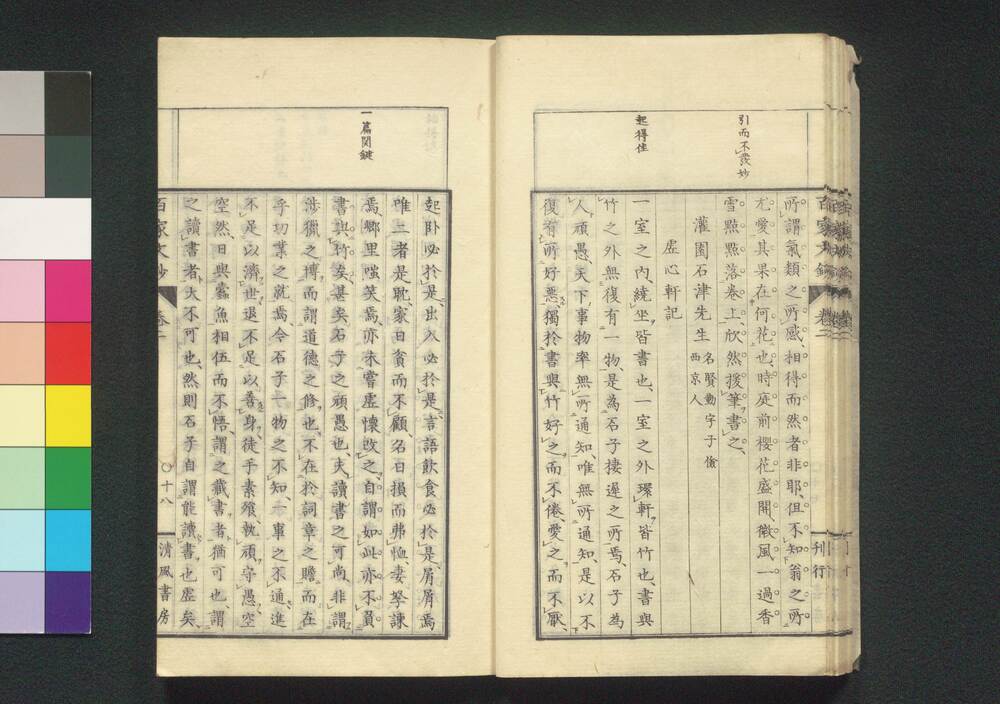 引而不發妙
起得佳
所謂氣類之所感、相得而然者非耶、但不知翁之所
尤愛其果在何花也、時庭前櫻花盛開、微風一過香
雪點點落卷上、欣然援筆書之、
灌園石津先生 名賢勤字子儉 西京人
虛心軒記
一室之內、繞坐皆書也、一室之外、環軒皆竹也、書與
竹之外、無復有一物、是為石子棲遲之所焉、石子為
人、頑愚、天下事物率無所通知、唯無所通知、是以不
復有所好惡、獨於書與竹、好之而不倦、愛之而不厭、
一篇関鍵
起卧必於是、出入必於是、言語飲食必於是、屑屑焉
唯二者是耽、家日貧而不顧、名日損而弗恤、妻孥諫
焉、鄉里嗤笑焉、亦未嘗虛懷改之、自謂如此亦不負
書與竹矣、甚矣石子之頑愚也、夫讀書之可尚、非謂
涉獵之博、而謂道德之修也、不在於詞章之贍、而在
乎功業之就焉、今石子一物之不知、一事之不通、進
不足以濟世、退不足以善身、徒手素飱、執頑守愚、空
空然、日與蠹魚相伍而不悟、謂之藏書者猶可也、謂
之讀書者、大不可也、然則石子自謂能讀書也虛矣、
百家文鈔 卷二 〇十八 清風書房
刊行